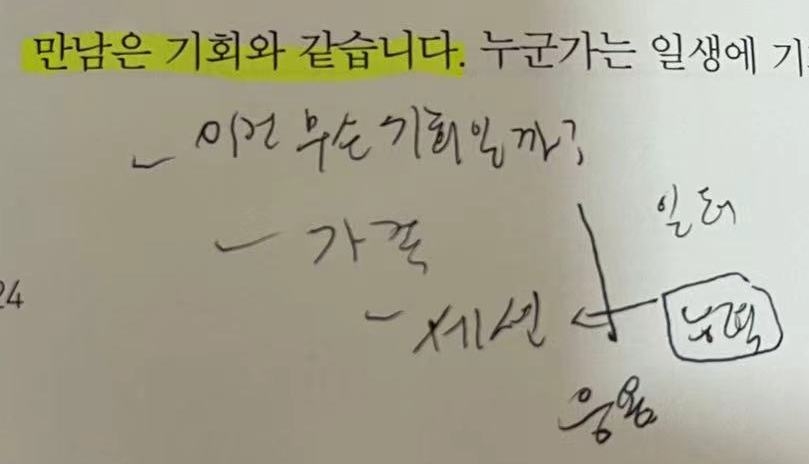 만남은 기회와 같습니다. 누군가는 일생에 기
이건 무슨 기회일까?
가족
일터
세션
24
응용